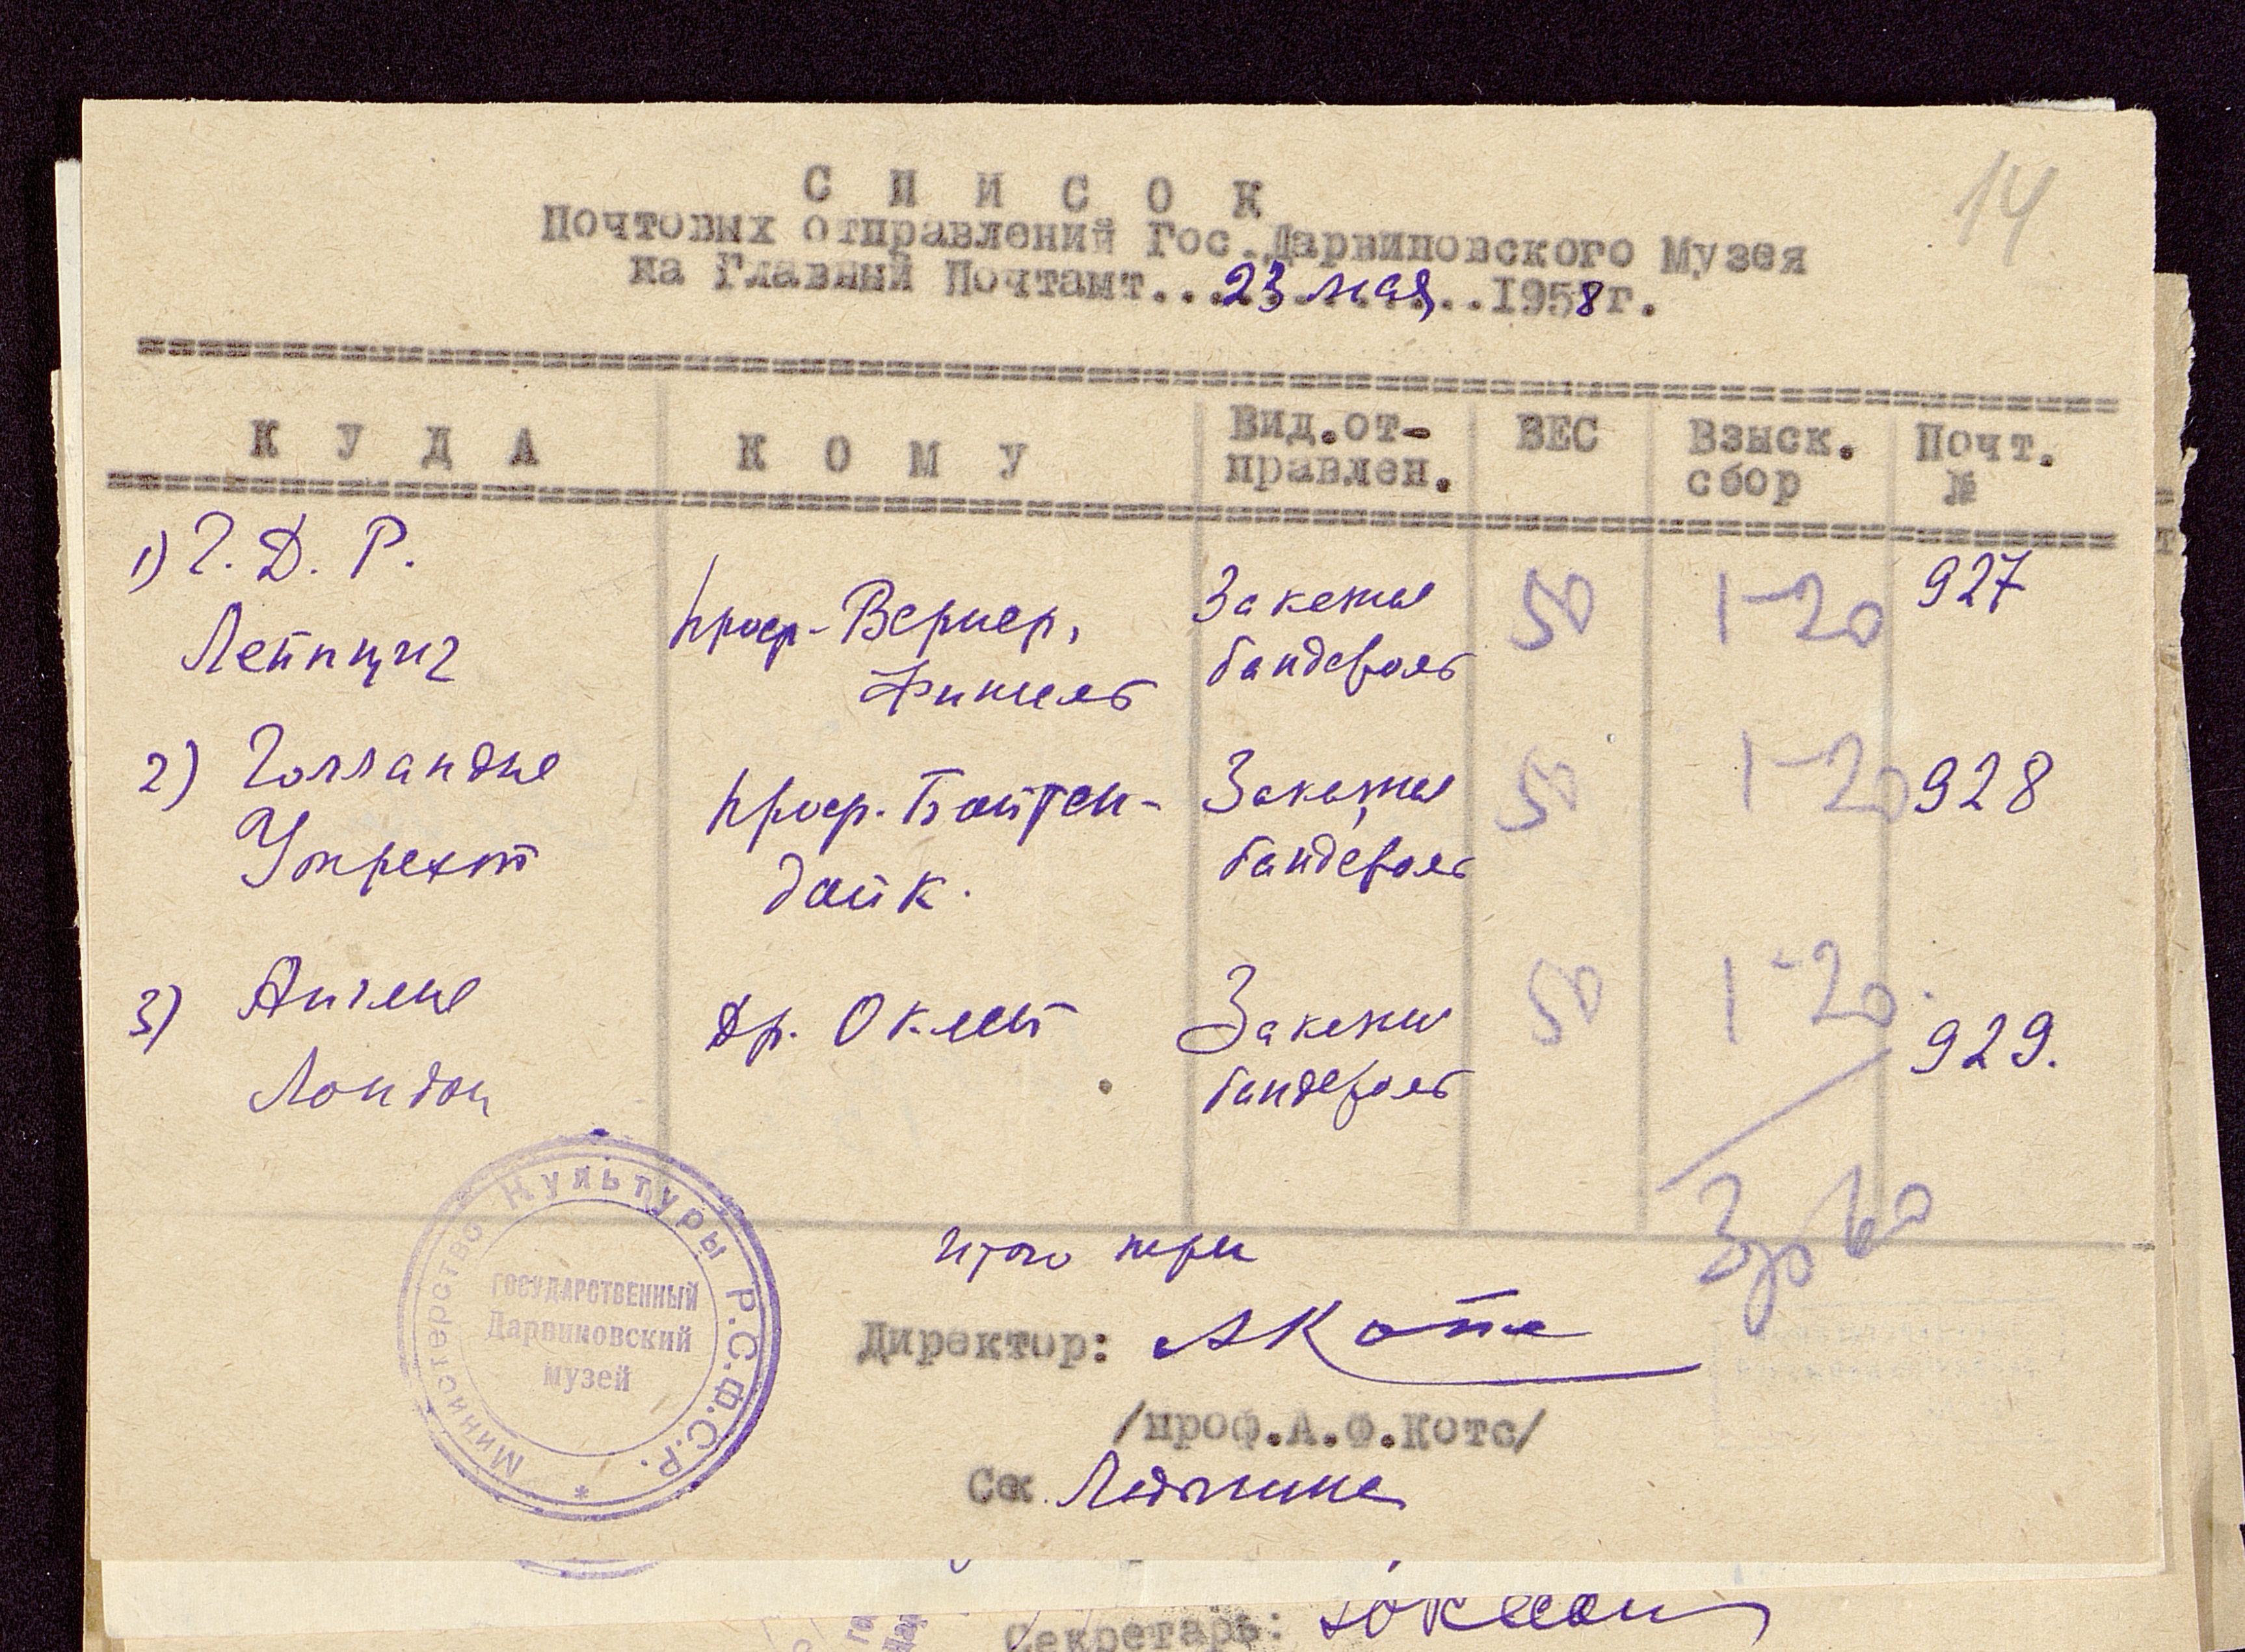 14
С П И С О К
Почтовых отправлений Гос.Дарвиновского Музея
на Главный Почтамт...23 мая...1958г.
К У Д А К О М У Вид.от- ВЕС Взыск. Почт.
правлен. сбор №
1) Г. Д. Р. 927
проф. Вернер, Заказная 50 1-20
Лейпциг бандероль
Фишель
2) Голландия Заказная 50 1-20 928
проф. Бойтен-
Утрехт бандероль
дайк.
3) Англия Др. Оклей Заказная 50 1-20 929.
Лондон бандероль
3р60
Итого три
Министерство Культуры Р.С.Ф.С.Р. *
ГОСУДАРСТВЕННЫЙ
Дарвиновский
музей
Директор: АКотс
/проф.А.Ф.Котс/
Сек.
Секретарь: